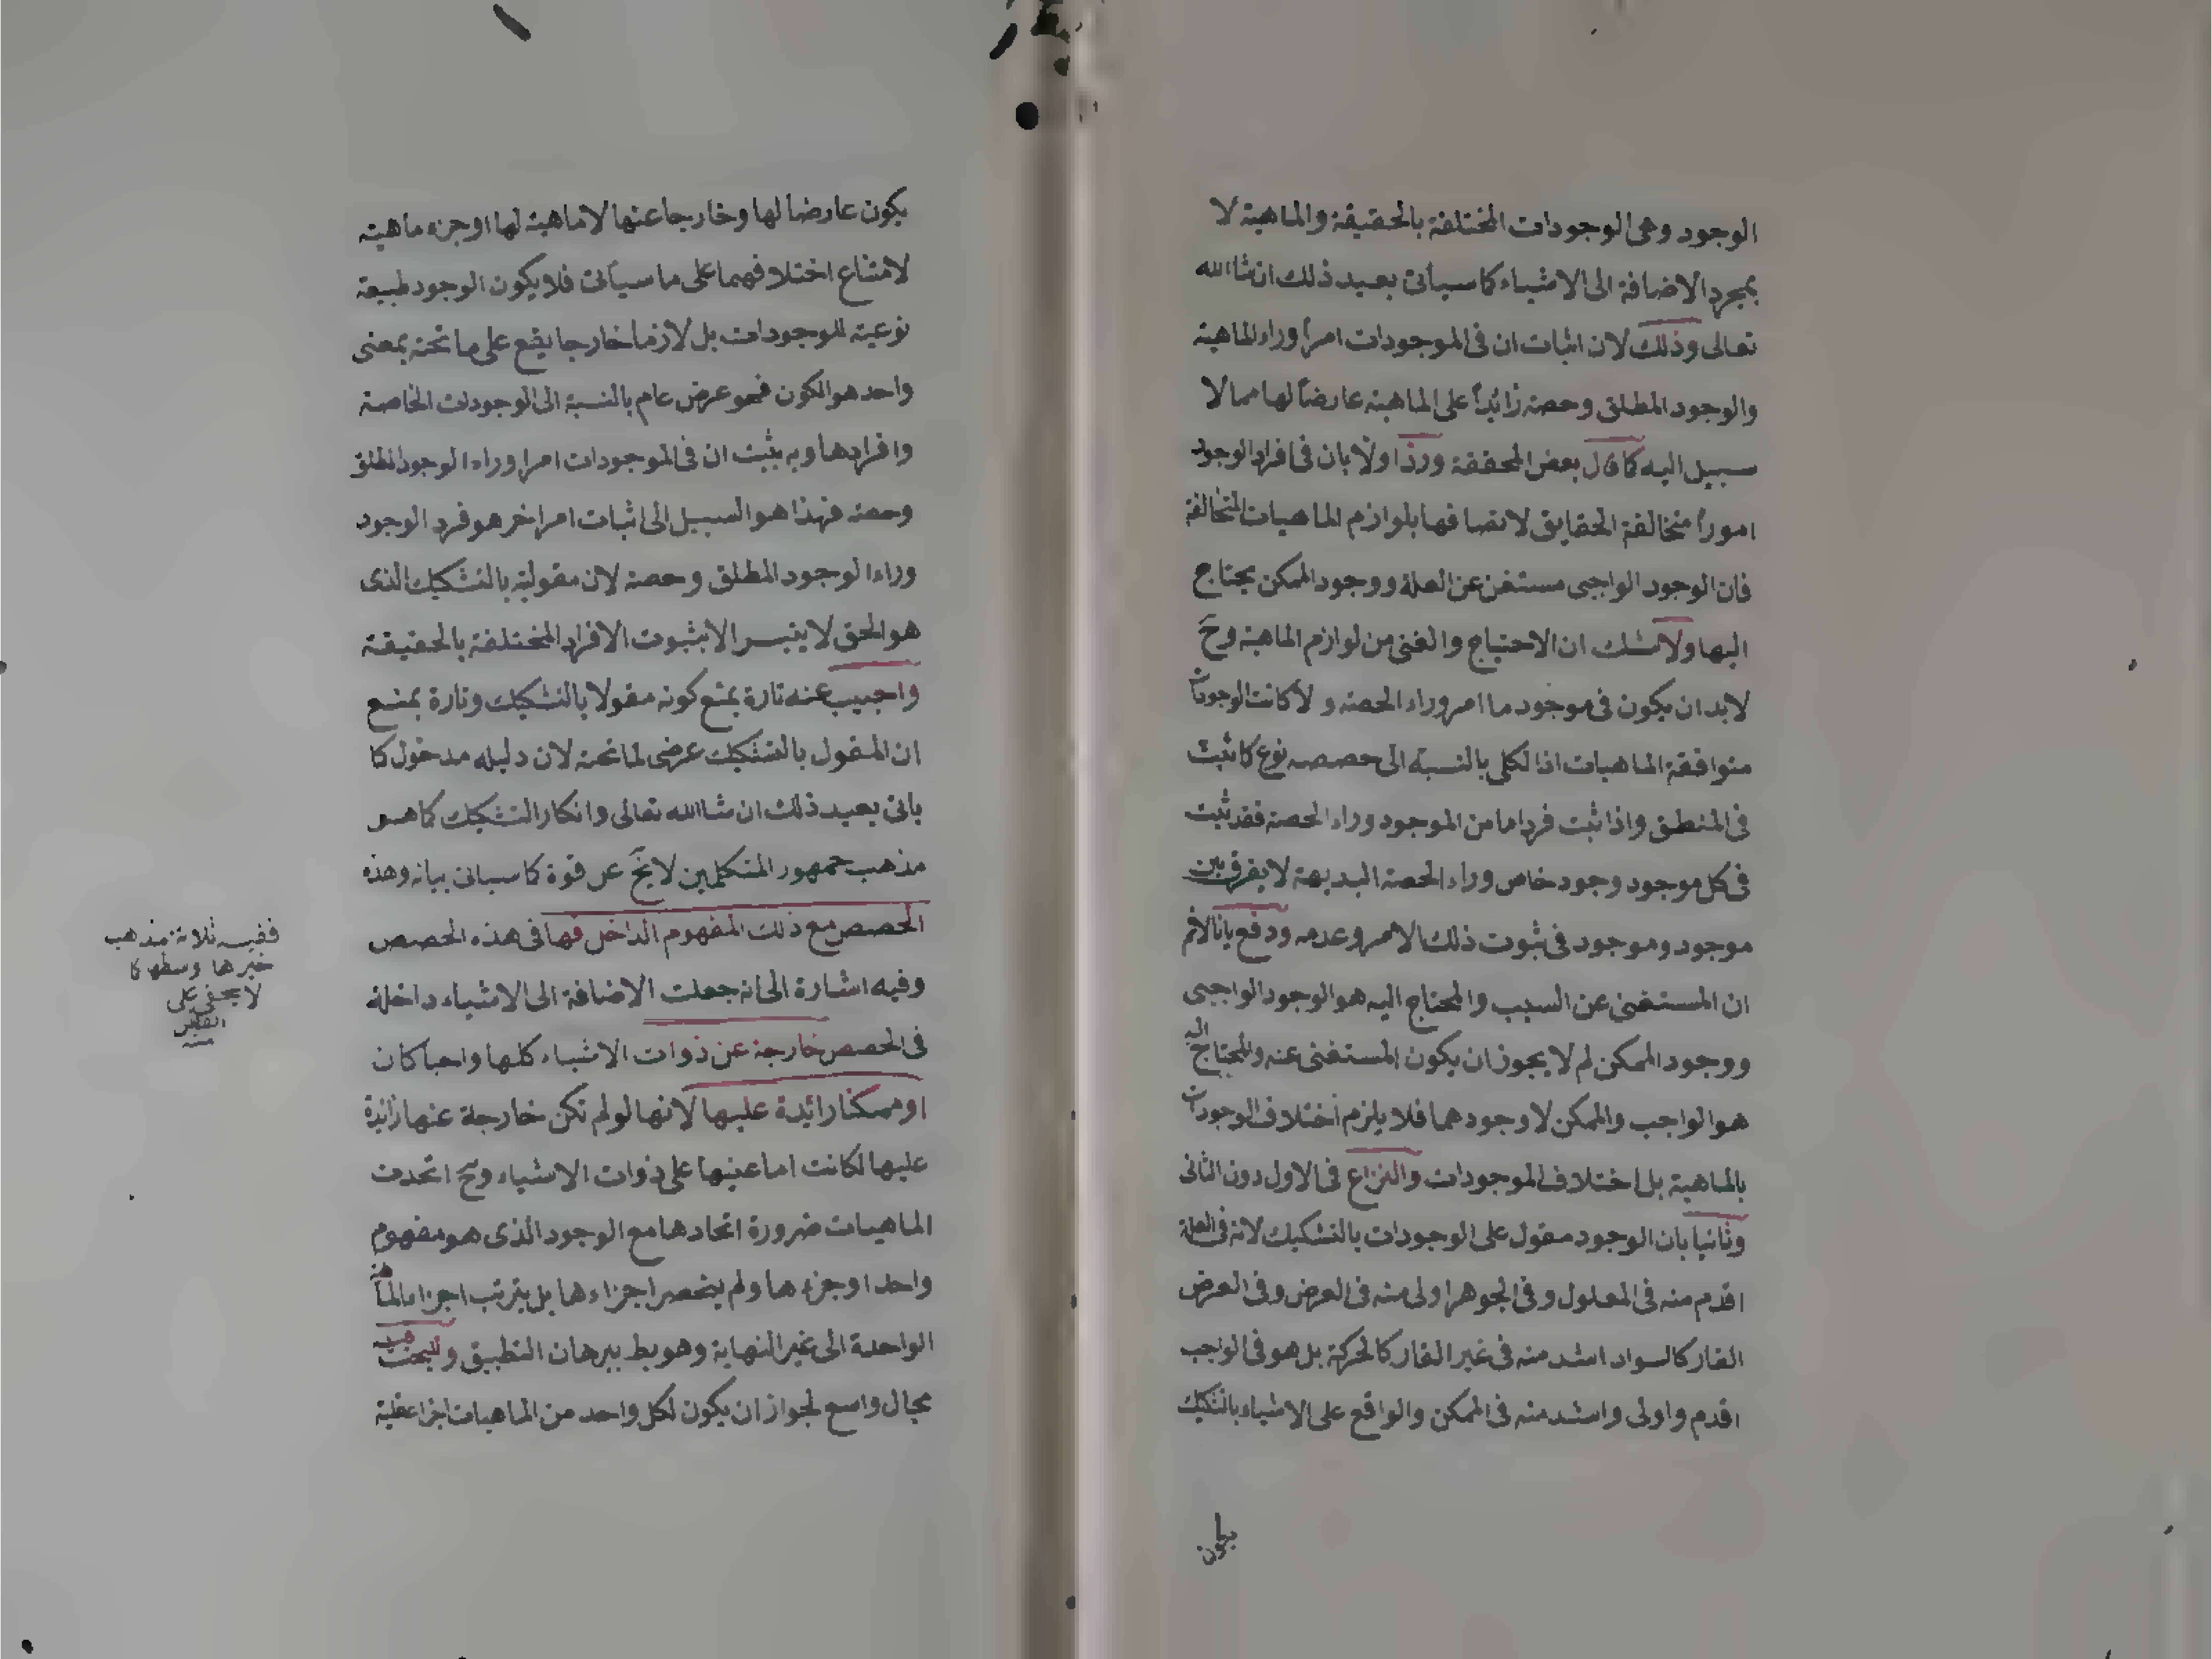 الوجود وهى الوجودات المختلفة بالحقيقة والماهية لا
بمجرد الاضافة الى الاشياء كما سيأتى بعيد ذلك ان شاالله
تعالى وذلك لان اثبات ان فى الموجودات امرا وراء الماهية
والوجود المطلق وحصته زائداً على الماهية عارضاً لها مما لا
سبيل اليه كما قال بعض المحققة ورد اولا بان فى افراد الوجود
اموراً متخالفة الحقايق لاتصافها بلوازم الماهيات المتخالفة
فان الوجود الواجبى مستغن عن العلة ووجود الممكن يحتاج
اليها ولا شك ان الاحتياج والغنى من لوازم الماهية وح
لابد ان يكون فى موجود ما امر وراء الحصة والا كانت الوجودات
متوافقة الماهيات اذ الكلى بالنسبة الى حصصه نوع كما ثبت
فى المنطق واذا ثبت فرد ما من الموجود وراء الحصة فقد ثبت
فى كل موجود وجود خاص وراء الحصة البديهة لا يفرق بين
موجود وموجود فى ثبوت ذلك الامر وعدمه ودفع بانا لانم
ان المستغنى عن السبب والمحتاج اليه هو الوجود الواجبى
ووجود الممكن لم لا يجوز ان يكون المستغنى عنه والمحتاج اليه
هو الواجب والممكن لا وجودهما فلا يلزم اختلاف الوجودات
بالماهية بل اختلاف الموجودات والنزاع فى الاول دون الثانى
وثانيا بان الوجود مقول على الوجودات بالتشكيك لانه فى العلة
اقدم منه فى المعلول وفى الجوهر اولى منه فى العرض وفى العرض
القار كالسواد اشد منه فى غير القار كالحركة بل هو فى الواجب
اقدم واولى واشد منه فى الممكن والواقع على الاشياء بالتشكيك
يكون
يكون عارضا لها وخارجا عنها لا ماهية لها او جزء ماهية
لامتناع اختلافهما على ما سيأتى فلا يكون الوجود طبيعة
نوعية للوجودات بل لازما خارجا يقع على ما تحته بمعنى
واحد هو الكون فهو عرض عام بالنسبة الى الوجودات الخاصة
وافرادها وبه يثبت ان فى الموجودات امرا وراء الوجود المطلق
وحصته فهذا هو السبيل الى اثبات امر اخر هو فرد الوجود
وراء الوجود المطلق وحصته لان مقوليته بالتشكيك الذى
هو الحق لا يتيسر الا بثبوت الافراد المختلفة بالحقيقة
واجيب عنه تارة بمنع كونه مقولا بالتشكيك وتارة بمنع
ان المقول بالتشكيك عرضى لما تحته لان دليله مدخول كما
ياتى بعيد ذلك ان شاالله تعالى وانكار التشكيك كما هو
مذهب جمهور المتكلمين لا يخ عن قوة كما سياتى بيانه وهذه
الحصص مع ذلك المفهوم الداخل فيها فى هذه الحصص
وفيه اشارة الى انه جعلت الاضافة الى الاشياء داخلة
فى الحصص خارجة عن ذوات الاشياء كلها واجبا كان
او ممكنا زائدة عليها لانها لو لم تكن خارجة عنها زائدة
عليها لكانت اما عينها على ذوات الاشياء وح اتحدت
الماهيات ضرورة اتحادها مع الوجود الذى هو مفهوم
واحد او جزءها ولم ينحصر اجزاءها بل يترتب اجزاء الماهية
الواحدة الى غير النهاية وهو بط ببرهان التطبيق وللبحث
مجال واسع لجواز ان يكون لكل واحد من الماهيات اجزا عقلية
ففيه ثلاثة مذهب
خيرها وسطها كما
لا يخفى على